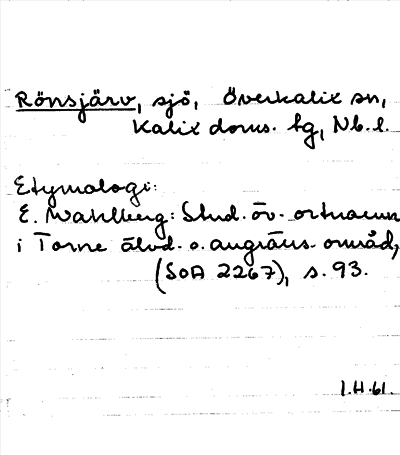 Rönsjärv, sjö, Överkalix sn,
Kalix doms. tg, Nb. l.
Etymologi:
E. Wahlberg: Stud. öv. ortnamn
i Torne älvd. o. angräns. områd,
(SOA 2267), s. 93.
1.H.61.